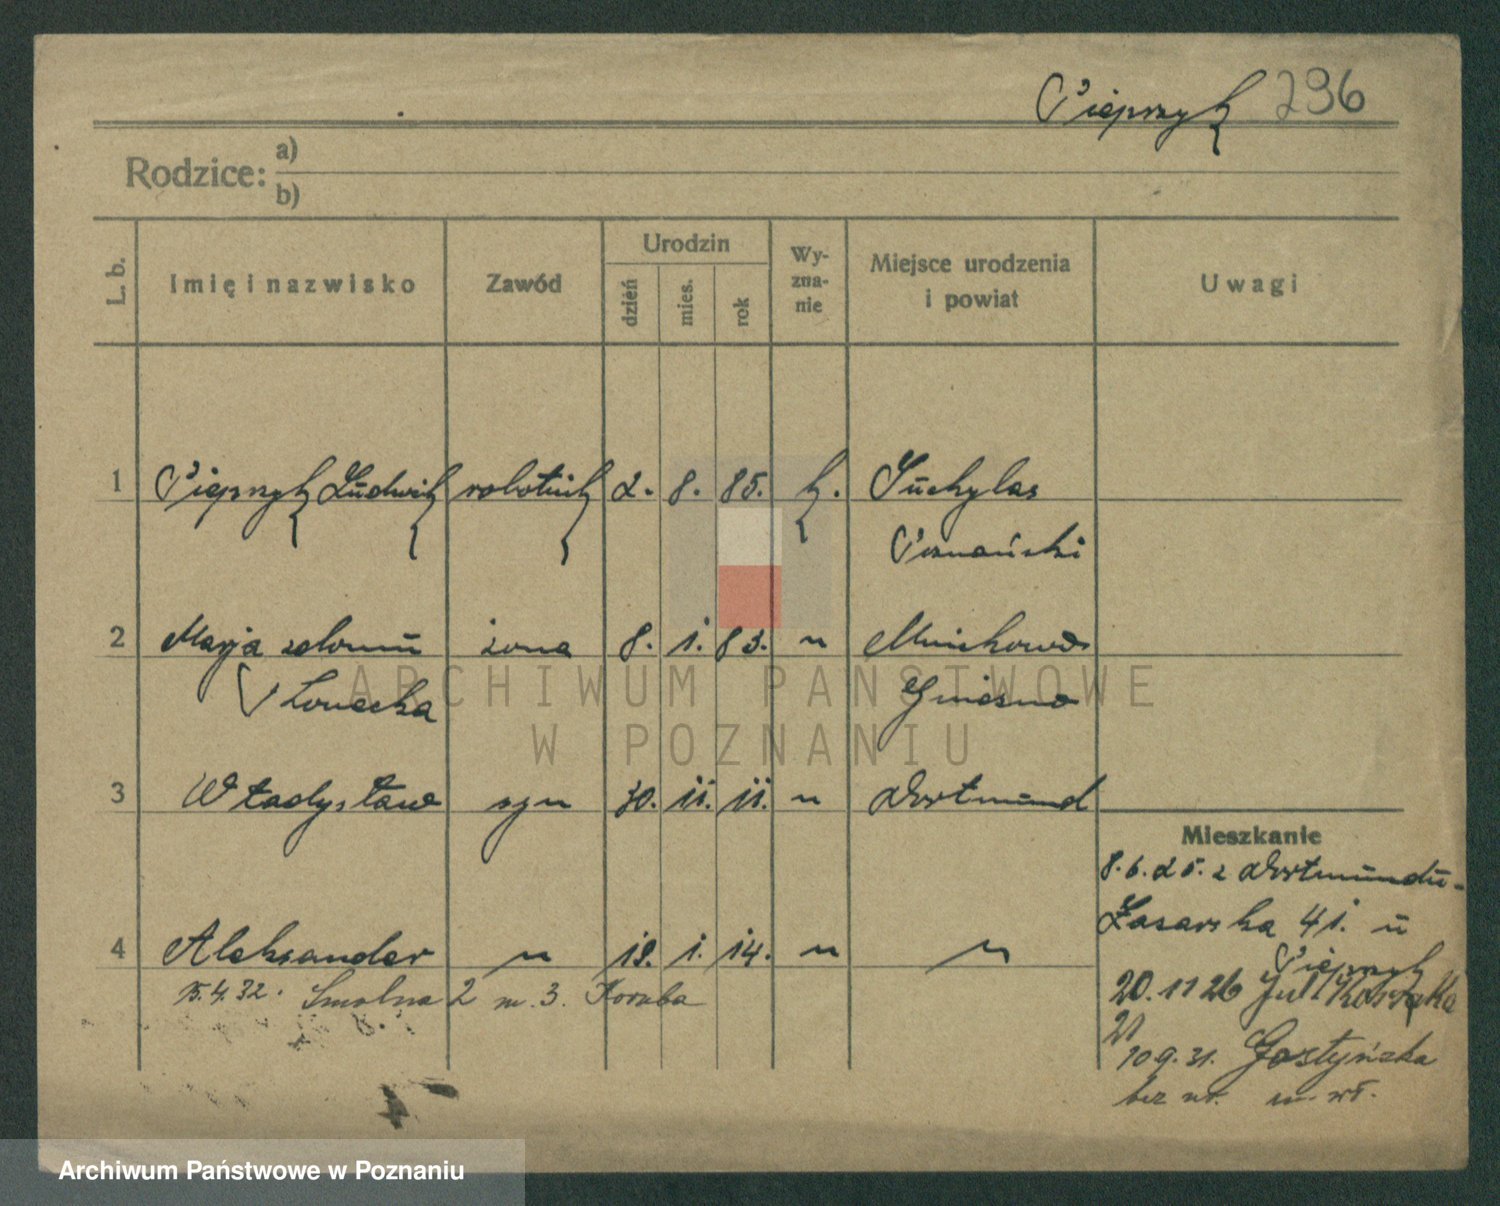 Pieprzyk 296
Rodzice: a)
b)
L. b. Imię i nazwisko Zawód Urodzin dzień mies. rok Wy-zna-nie Miejsce urodzenia i powiat Uwagi
1 Pieprzyk Ludwik robotnik 2. 8. 85. k. Suchylas
Poznański
2 Marja z domu żona 8. 1. 83. " Mnichowo
Słonecka Gniezno
ARCHIWUM PAŃSTWOWE
W POZNANIU
3 Władysław syn 30. 11. 11. " Dortmund
Mieszkanie
8.6.25. z Dortmundu-
Łazarska 41. u
Pieprzyk
4 Aleksander " 19. 1. 14. " "
15.4.32. Smolna 2 m. 3. Koruba
20.11 26 Jul Kossaka
21
10 9. 31. Gostyńska
bez nr. m. wł.
Archiwum Państwowe w Poznaniu